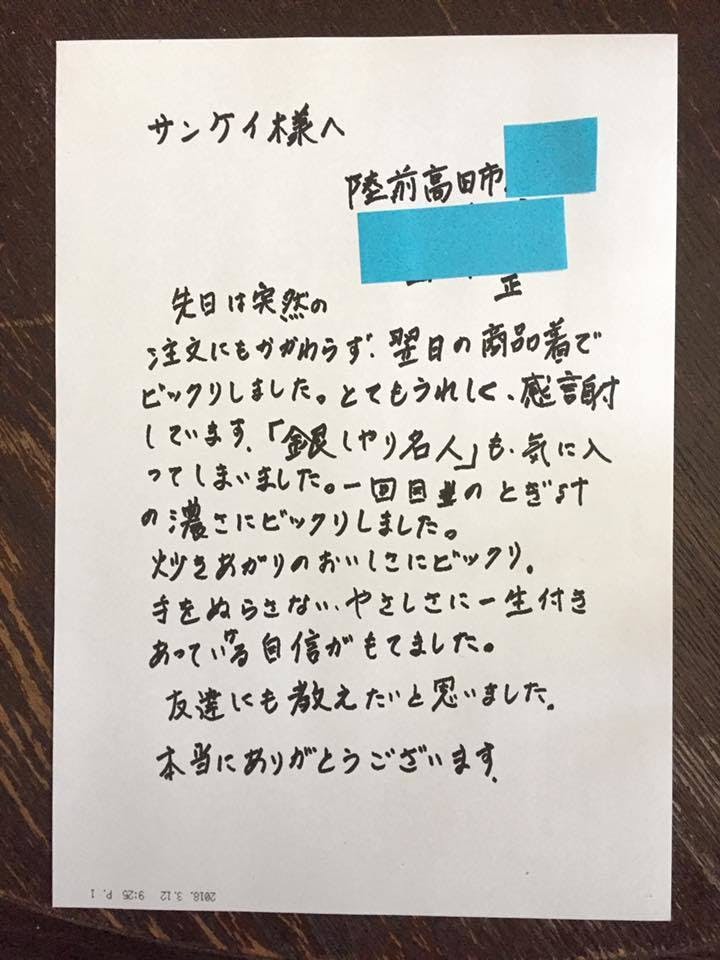 サンケイ様へ
陸前高田市
正
先日は突然の
注文にもかかわらず、翌日の商品着で
ビックリしました。とてもうれしく、感謝
しています。「銀しゃり名人」も、気に入
ってしまいました。一回目の とぎ汁
の濃さにビックリしました。
炊きあがりのおいしさにビックリ。
手をぬらさない、やさしさに一生付き
あっていける自信がもてました。
友達にも教えたいと思いました。
本当にありがとうございます。
2018. 3.12 9:25 P. 1